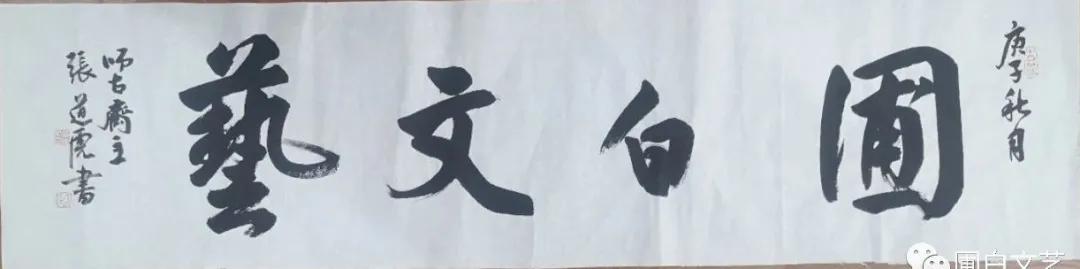 庚子秋月
圃白文藝
師古齋主
張道虎書
圃白文艺